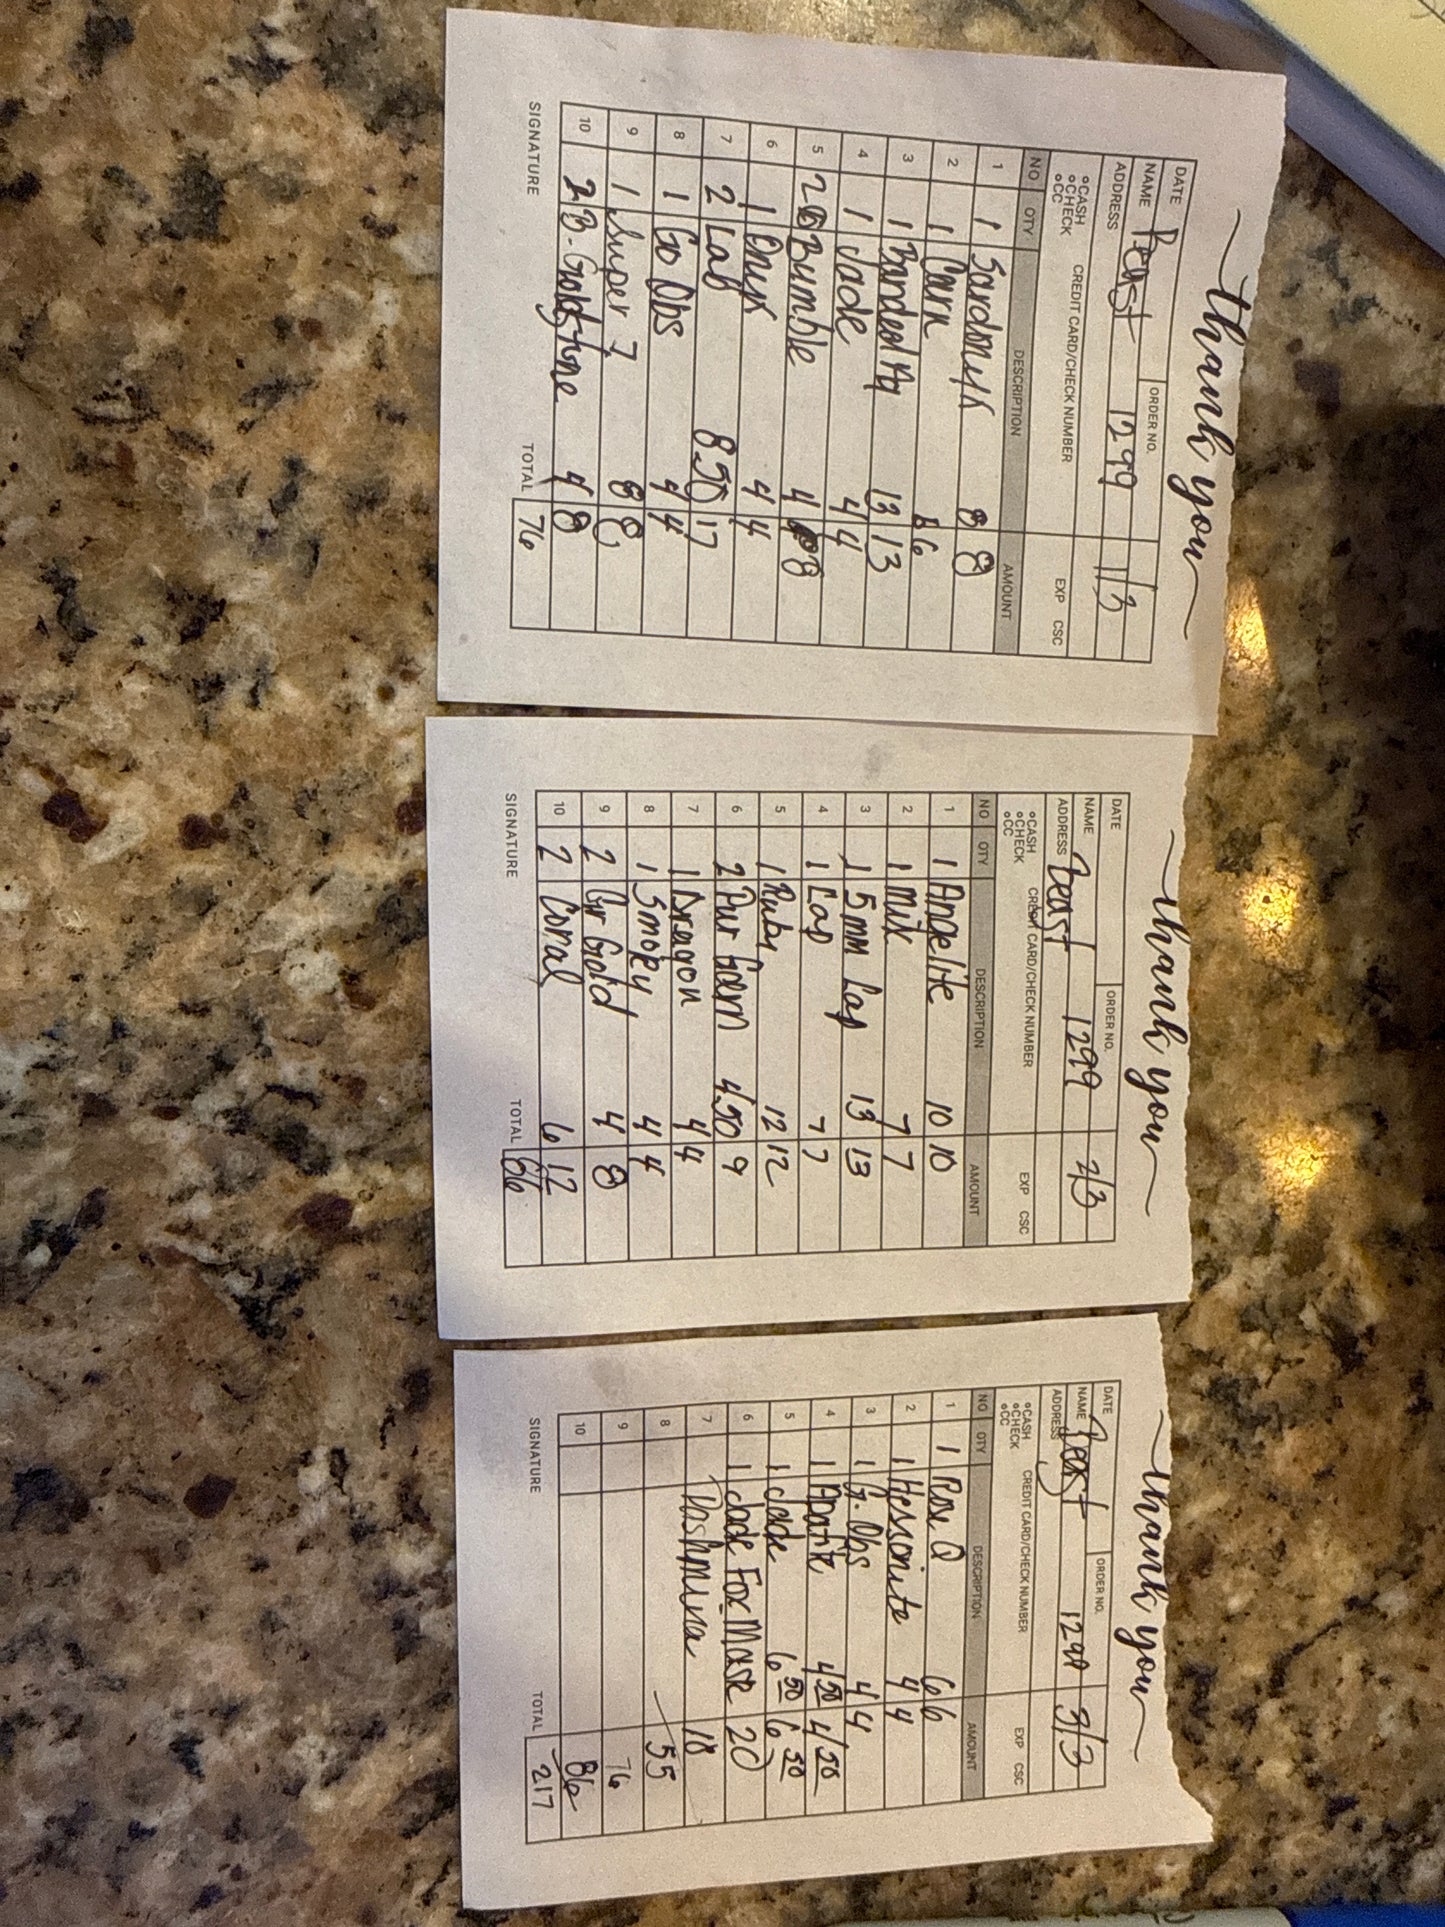 thank you
DATE ORDER NO.
NAME Beast 1299 1/3
ADDRESS
CASH CREDIT CARD/CHECK NUMBER EXP CSC
CHECK
CC
NO QTY DESCRIPTION AMOUNT
1 1 Sardonyx 8 8
2 1 Carn 6 6
3 1 Banded Ag 13 13
4 1 Jade 4 4
5 2 Bumble 4 8
6 1 Onyx 4 4
7 2 Lab 8.50 17
8 1 Go Obs 4 4
9 1 Super 7 8 8
10 2 B-Goldstone 4 8
SIGNATURE TOTAL 76
thank you
DATE ORDER NO.
NAME Beast 1299 2/3
ADDRESS
CASH CREDIT CARD/CHECK NUMBER EXP CSC
CHECK
CC
NO QTY DESCRIPTION AMOUNT
1 1 Angelite 10 10
2 1 Milk 7 7
3 1 5mm Lap 13 13
4 1 Lap 7 7
5 1 Ruby 12 12
6 2 Pur Garn 4.50 9
7 1 Dragon 4 4
8 1 Smoky 4 4
9 2 Gr Gold 4 8
10 2 Coral 6 12
SIGNATURE TOTAL 86
thank you
DATE ORDER NO.
NAME Beast 1299 3/3
ADDRESS
CASH CREDIT CARD/CHECK NUMBER EXP CSC
CHECK
CC
NO QTY DESCRIPTION AMOUNT
1 1 Rose Q 6 6
2 1 Hessonite 4 4
3 1 G-Obs 4 4
4 1 Apatite 4 50 4 50
5 1 Jade 6 50 6 50
6 1 Jade Fox Mask 20
7 Pashmina 18
8 55
9 76
10 86
SIGNATURE TOTAL 217